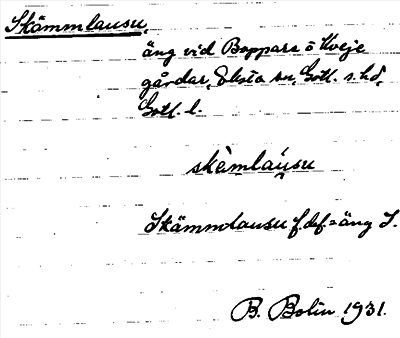 Skämmlausu,
äng vid Bopparve o Kveje
gårdar, Eksta sn, Gotl. s. hd,
Gotl. l.
skàmláusu
Skämmlausu f. def. = äng S.
B. Bolin 1931.